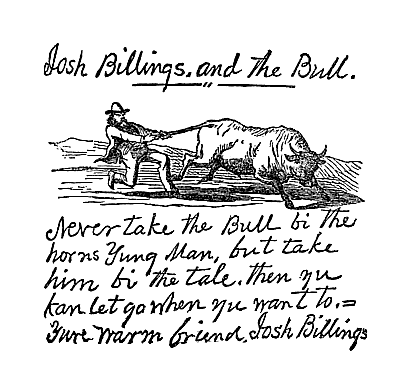 Josh Billings. and the Bull.
Never take the Bull bi the
horns Yung Man, but take
him bi the tale, then yu
kan let go when yu want to. =
Yure warm friend, Josh Billings